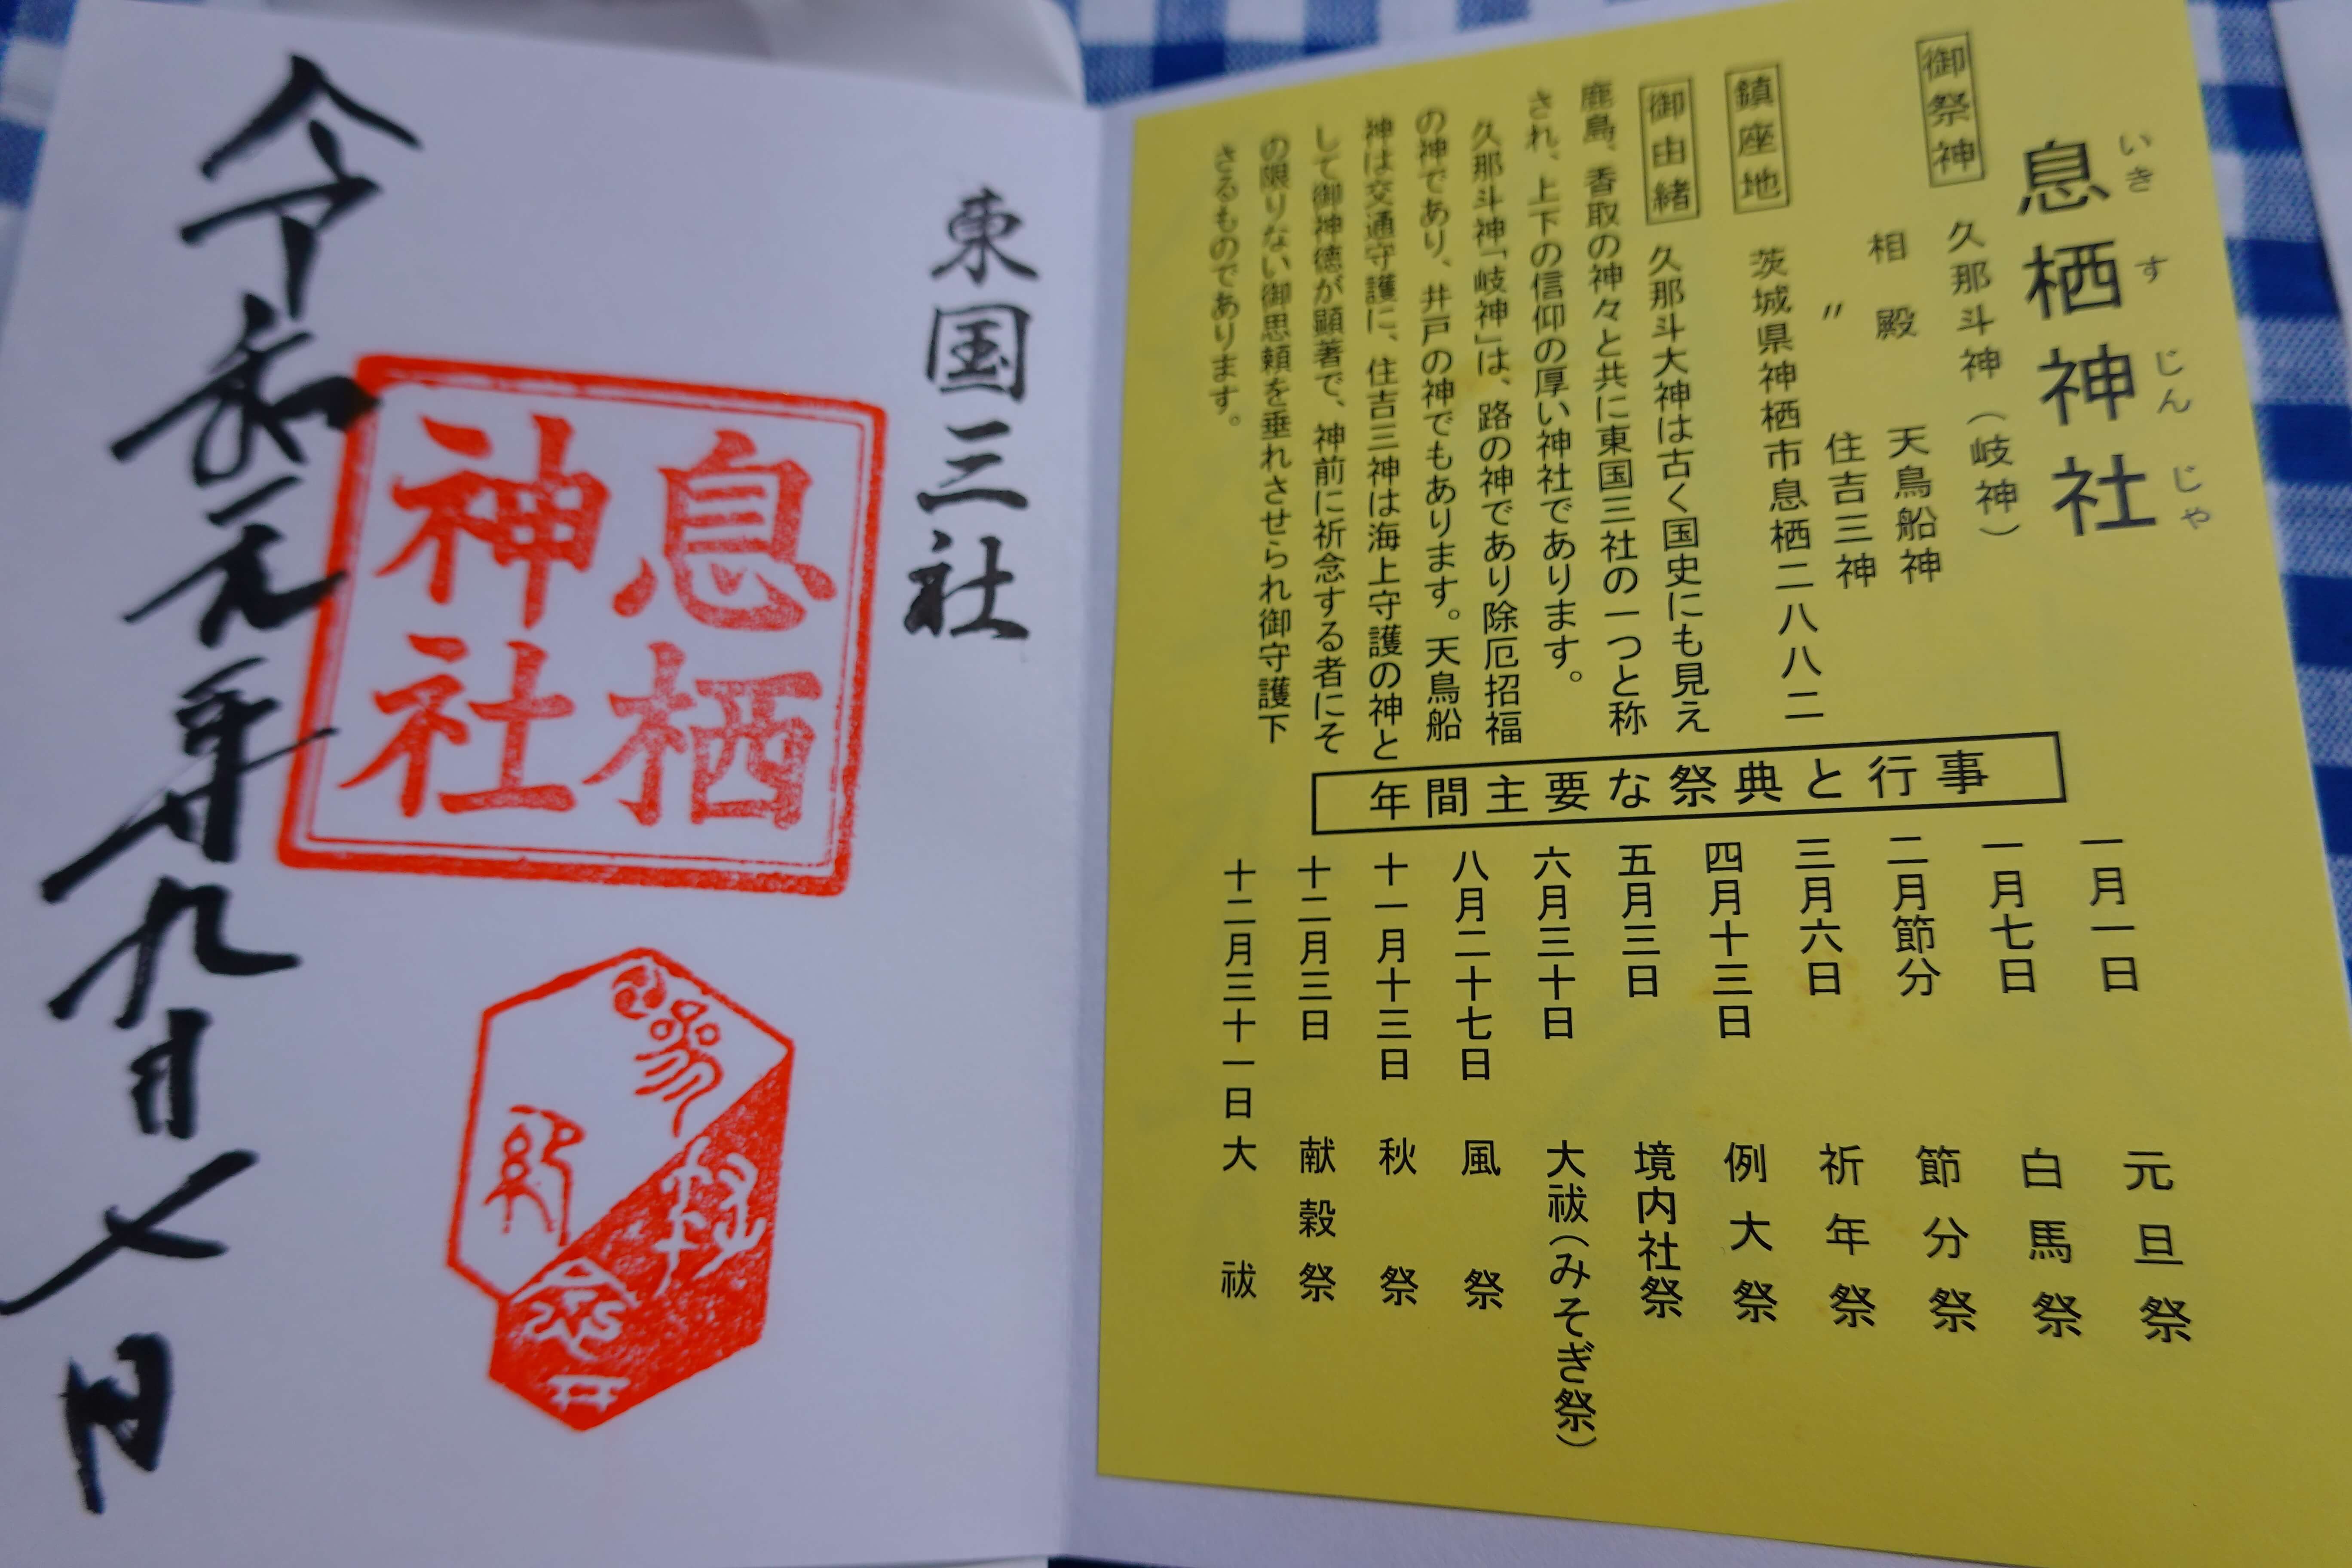 息栖神社
いきすじんじゃ
御祭神
久那斗神（岐神）
相殿 天鳥船神
〃 住吉三神
鎮座地
茨城県神栖市息栖二八八二
御由緒
久那斗大神は古く国史にも見え
鹿島、香取の神々と共に東国三社の一つと称
され、上下の信仰の厚い神社であります。
久那斗神「岐神」は、路の神であり除厄招福
の神であり、井戸の神でもあります。天鳥船
神は交通守護に、住吉三神は海上守護の神と
して御神徳が顕著で、神前に祈念する者にそ
の限りない御思頼を垂れさせられ御守護下
さるものであります。
年間主要な祭典と行事
一月一日 元旦祭
一月七日 白馬祭
二月節分 節分祭
三月六日 祈年祭
四月十三日 例大祭
五月三日 境内社祭
六月三十日 大祓（みそぎ祭）
八月二十七日 風祭
十一月十三日 秋祭
十二月三日 献穀祭
十二月三十一日 大祓
東国三社
息栖
神社
令和元年九月七日